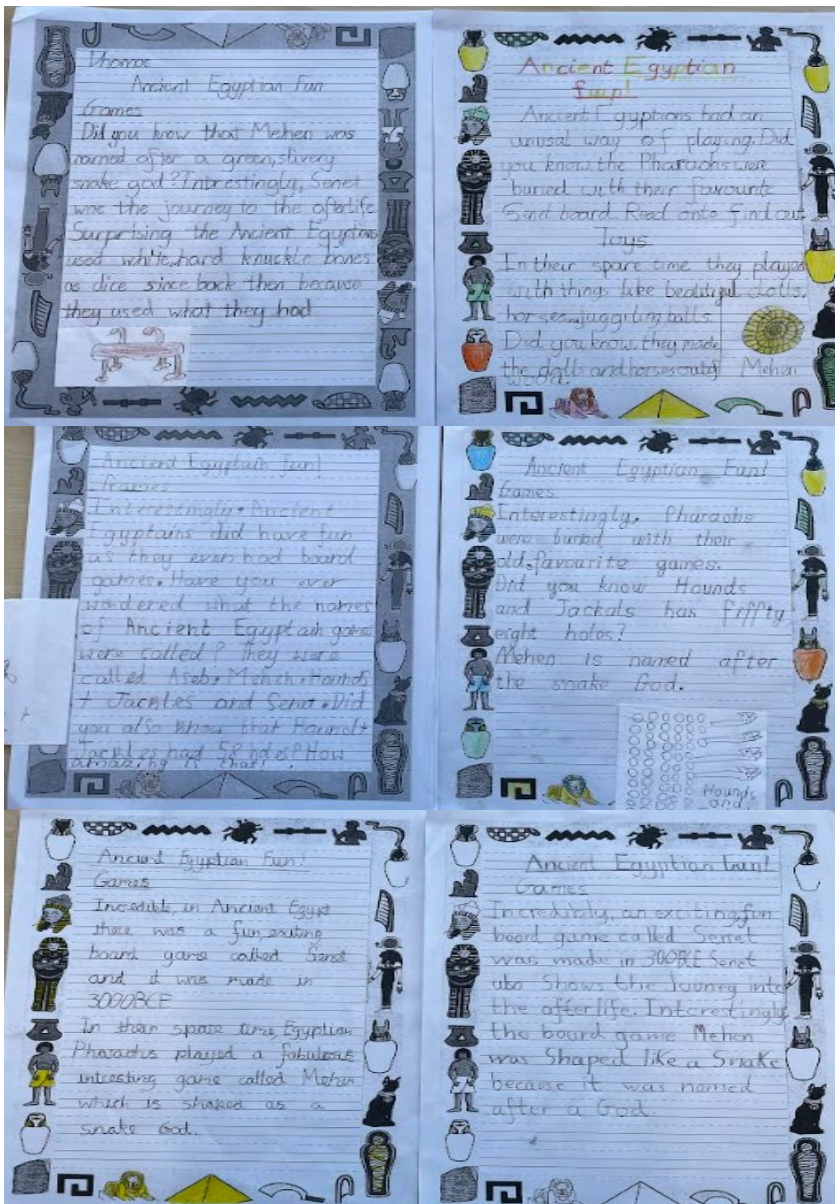 Thomas
Ancient Egyptian Fun
Games
Did you know that Mehen was
named after a green, slivery
snake god? Intrestingly, Senet
was the journey to the afterlife
Surprising the Ancient Egyptians
used white, hard knuckle bones
as dice since back then because
they used what they had
Ancient Egyptian
fun!
Ancient Egyptions had an
unusal way of playing. Did
you know the Pharaohs were
buried with their favourite
Senet board. Read onto find out
Toys
In their spare time they played
with things like beautiful dolls,
horses, juggiling balls.
Did you know they made
the dolls and horses out of
wood.
Mehen
Ancient Egyptain fun!
Games
Interestingly, Ancient
Egyptains did have fun
as they even had board
games. Have you ever
wondered what the names
of Ancient Egyptain games
were called? They were
called Aseb, Mehen, Hounds
+ Jackles and Senet. Did
you also know that Hound+
Jackles had 58 holes? How
amazing is that!
Ancient Egyptian Fun!
Games
Interestingly, Pharaohs
were buried with their
old, favourite games.
Did you know Hounds
and Jackals has fiffty
eight holes?
Mehen is named after
the snake God.
Hounds
and
Ancient Egyptian Fun!
Games
Incredible, in Ancient Egypt
there was a fun, exiting
board game called Senet
and it was made in
3000BCE
In their spare time, Egyptian
Pharaohs played a fabulous
intresting game called Mehen
which is shaped as a
snake God.
Ancient Egyptian Fun!
Games
Incredibly, an exciting, fun
board game called Senet
was made in 300BCE. Senet
also Shows the Journey into
the afterlife. Interestingly
the board game Mehen
was Shaped like a Snake
because it was named
after a God.